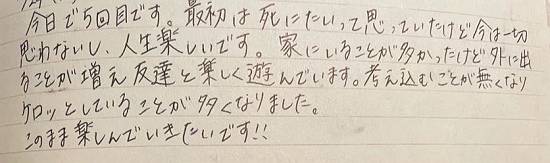 今日で5回目です。最初は死にたいって思っていたけど今は一切
思わないし、人生楽しいです。家にいることが多かったけど外に出
ることが増え友達と楽しく遊んでいます。考え込むことが無くなり
ケロッとしていることが多くなりました。
このまま楽しんでいきたいです!!